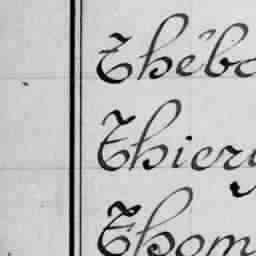 Théba
Thiery
Thom